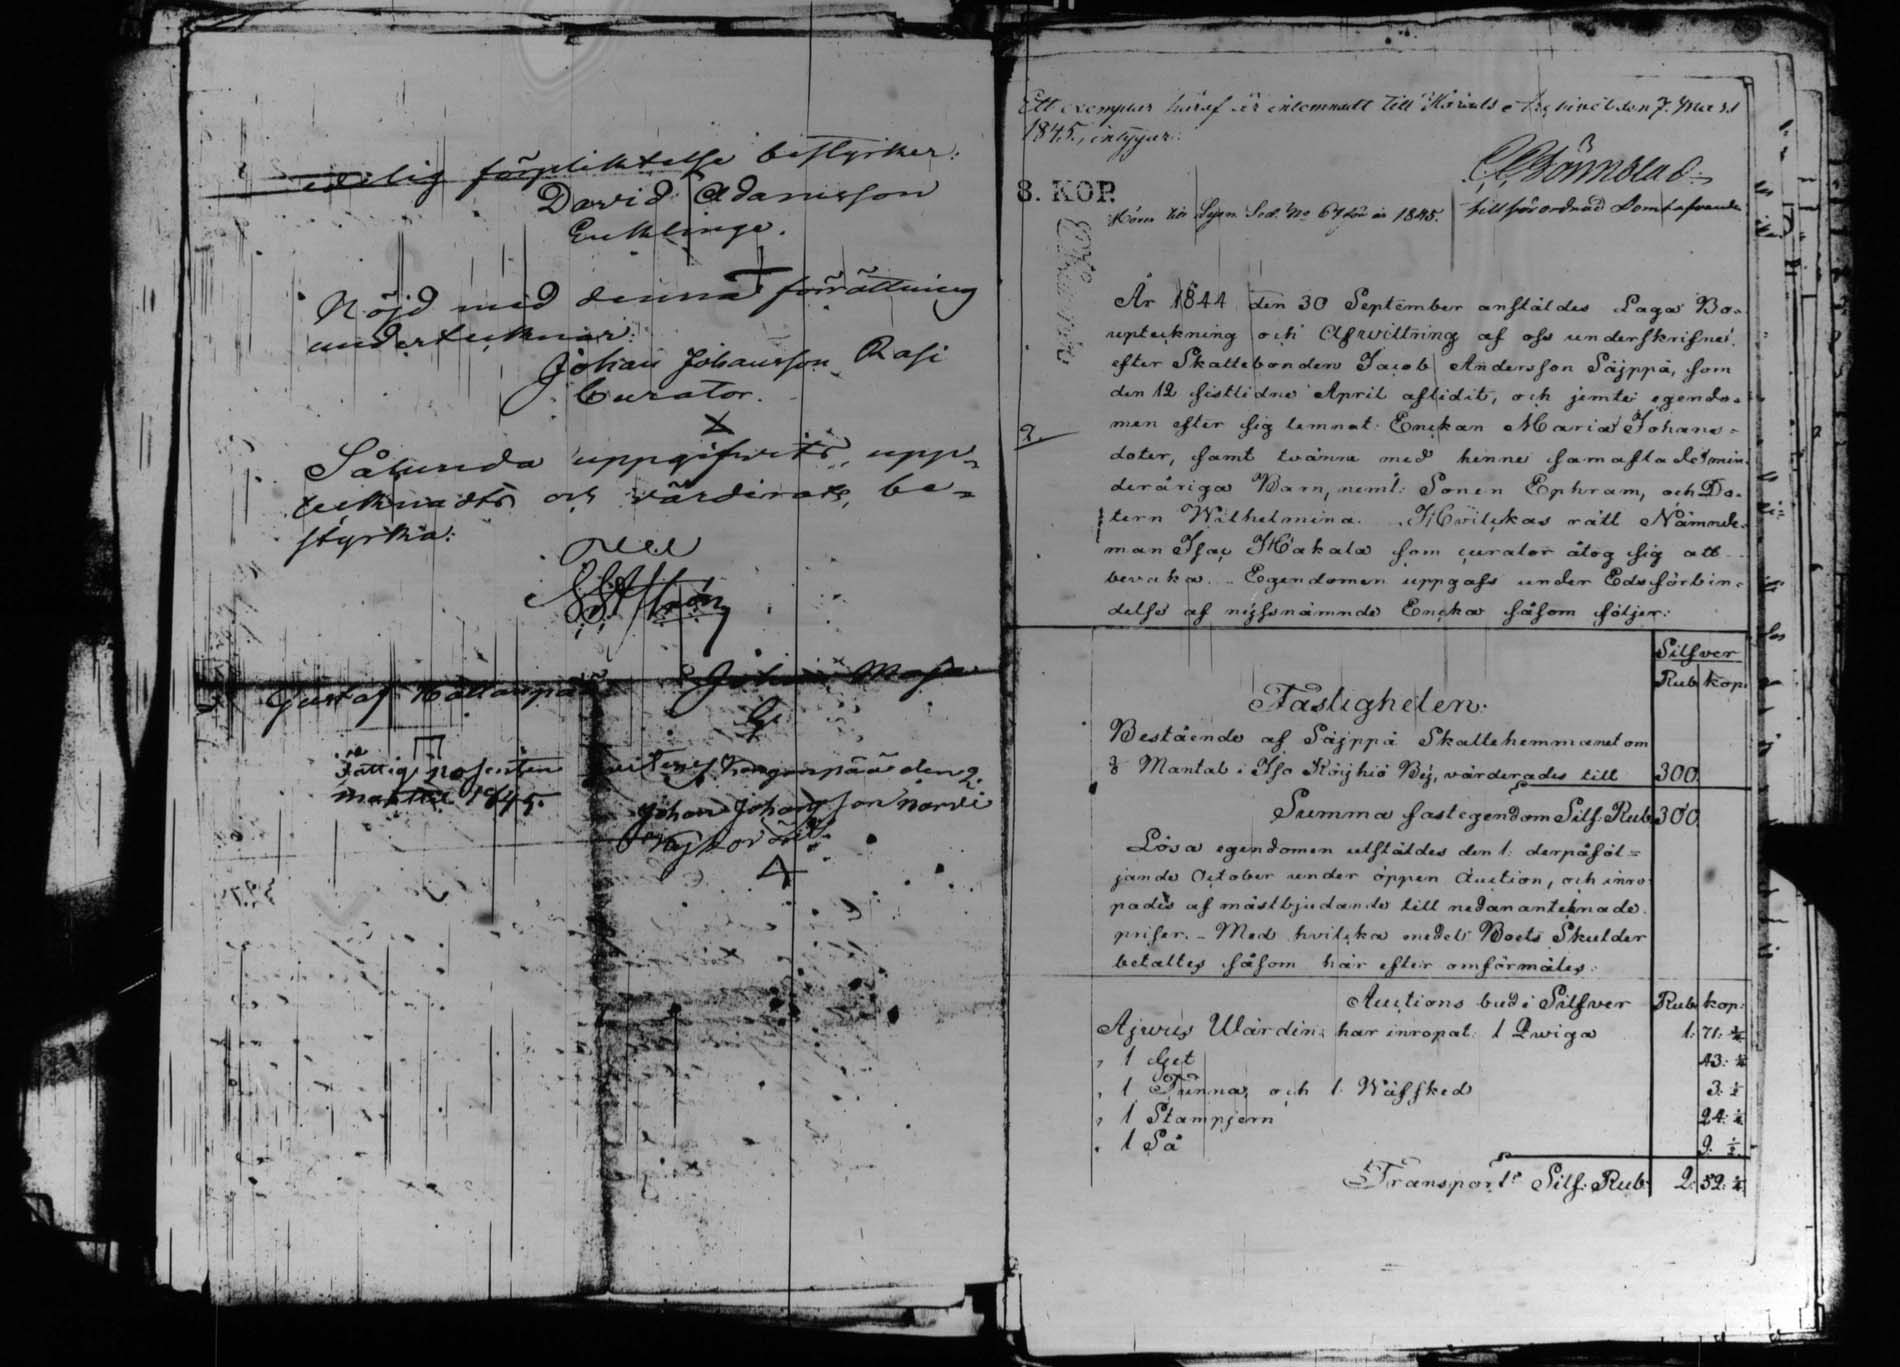 edelig förpliktelse bestyrker:
David Adamsson
Euklinge.
Nöjd med denna förrättning
undertecknar:
Johan Johansson Rasi
Curator.
Sålunda uppgifvits, upp-
tecknadts och värderats, be-
styrka:
Gustaf Johan
den 2.
Johan Johansson
1845.
Ett exemplar häraf är inlemnadt till Härads Archivet den 7. Mars
1845, intygar:
8. KOP.
Hörer till Prot. No 67 för år 1845.
tillförordnad Domhafvande
2.
År 1844 den 30 September anstäldes Laga Bo-
upteckning och Afwittring af oss underskrifne
efter Skattebonden Jacob Andersson Säjppä, som
den 12 sistlidne April aflidit, och jemte egendo-
men efter sig lemnat: Enckan Maria Johans-
doter, samt tvänne med henne samaflade min-
deråriga Barn, neml: Sonen Ephram, och Do-
tern Wilhelmina. Hvilckas rätt Nämnde-
man Isac Hakala som curator åtog sig att
bevaka. - Egendomen uppgafs under Edsförbin-
delse af nyssnämnde Encka såsom följer:
Silfver
Rub kop:
Fastigheten:
Bestående af Säjppä Skattehemmanet om
Mantal i Iso Röyhiö By, värderades till 300.
Summa fastegendom Silf: Rub 300.
Lösa egendomen utstäldes den 1. derpåföl-
jande October under öppen Auction, och inro-
pades af mästbjudande till nedanantecknade
priser. - Med hvilcka medel Boets Skulder
betaltes såsom här efter omförmäles:
Auctions bud i Silfver Rub kop:
Wärdin har inropat: 1 Qwiga 1: 71:
" 1 Get 43:
" 1 Tunna och 1 Wäfsked 3: ½
" 1 Stampjern 24:
" 1 Så 9. ½
Transport Silf: Rub: 2: 52: